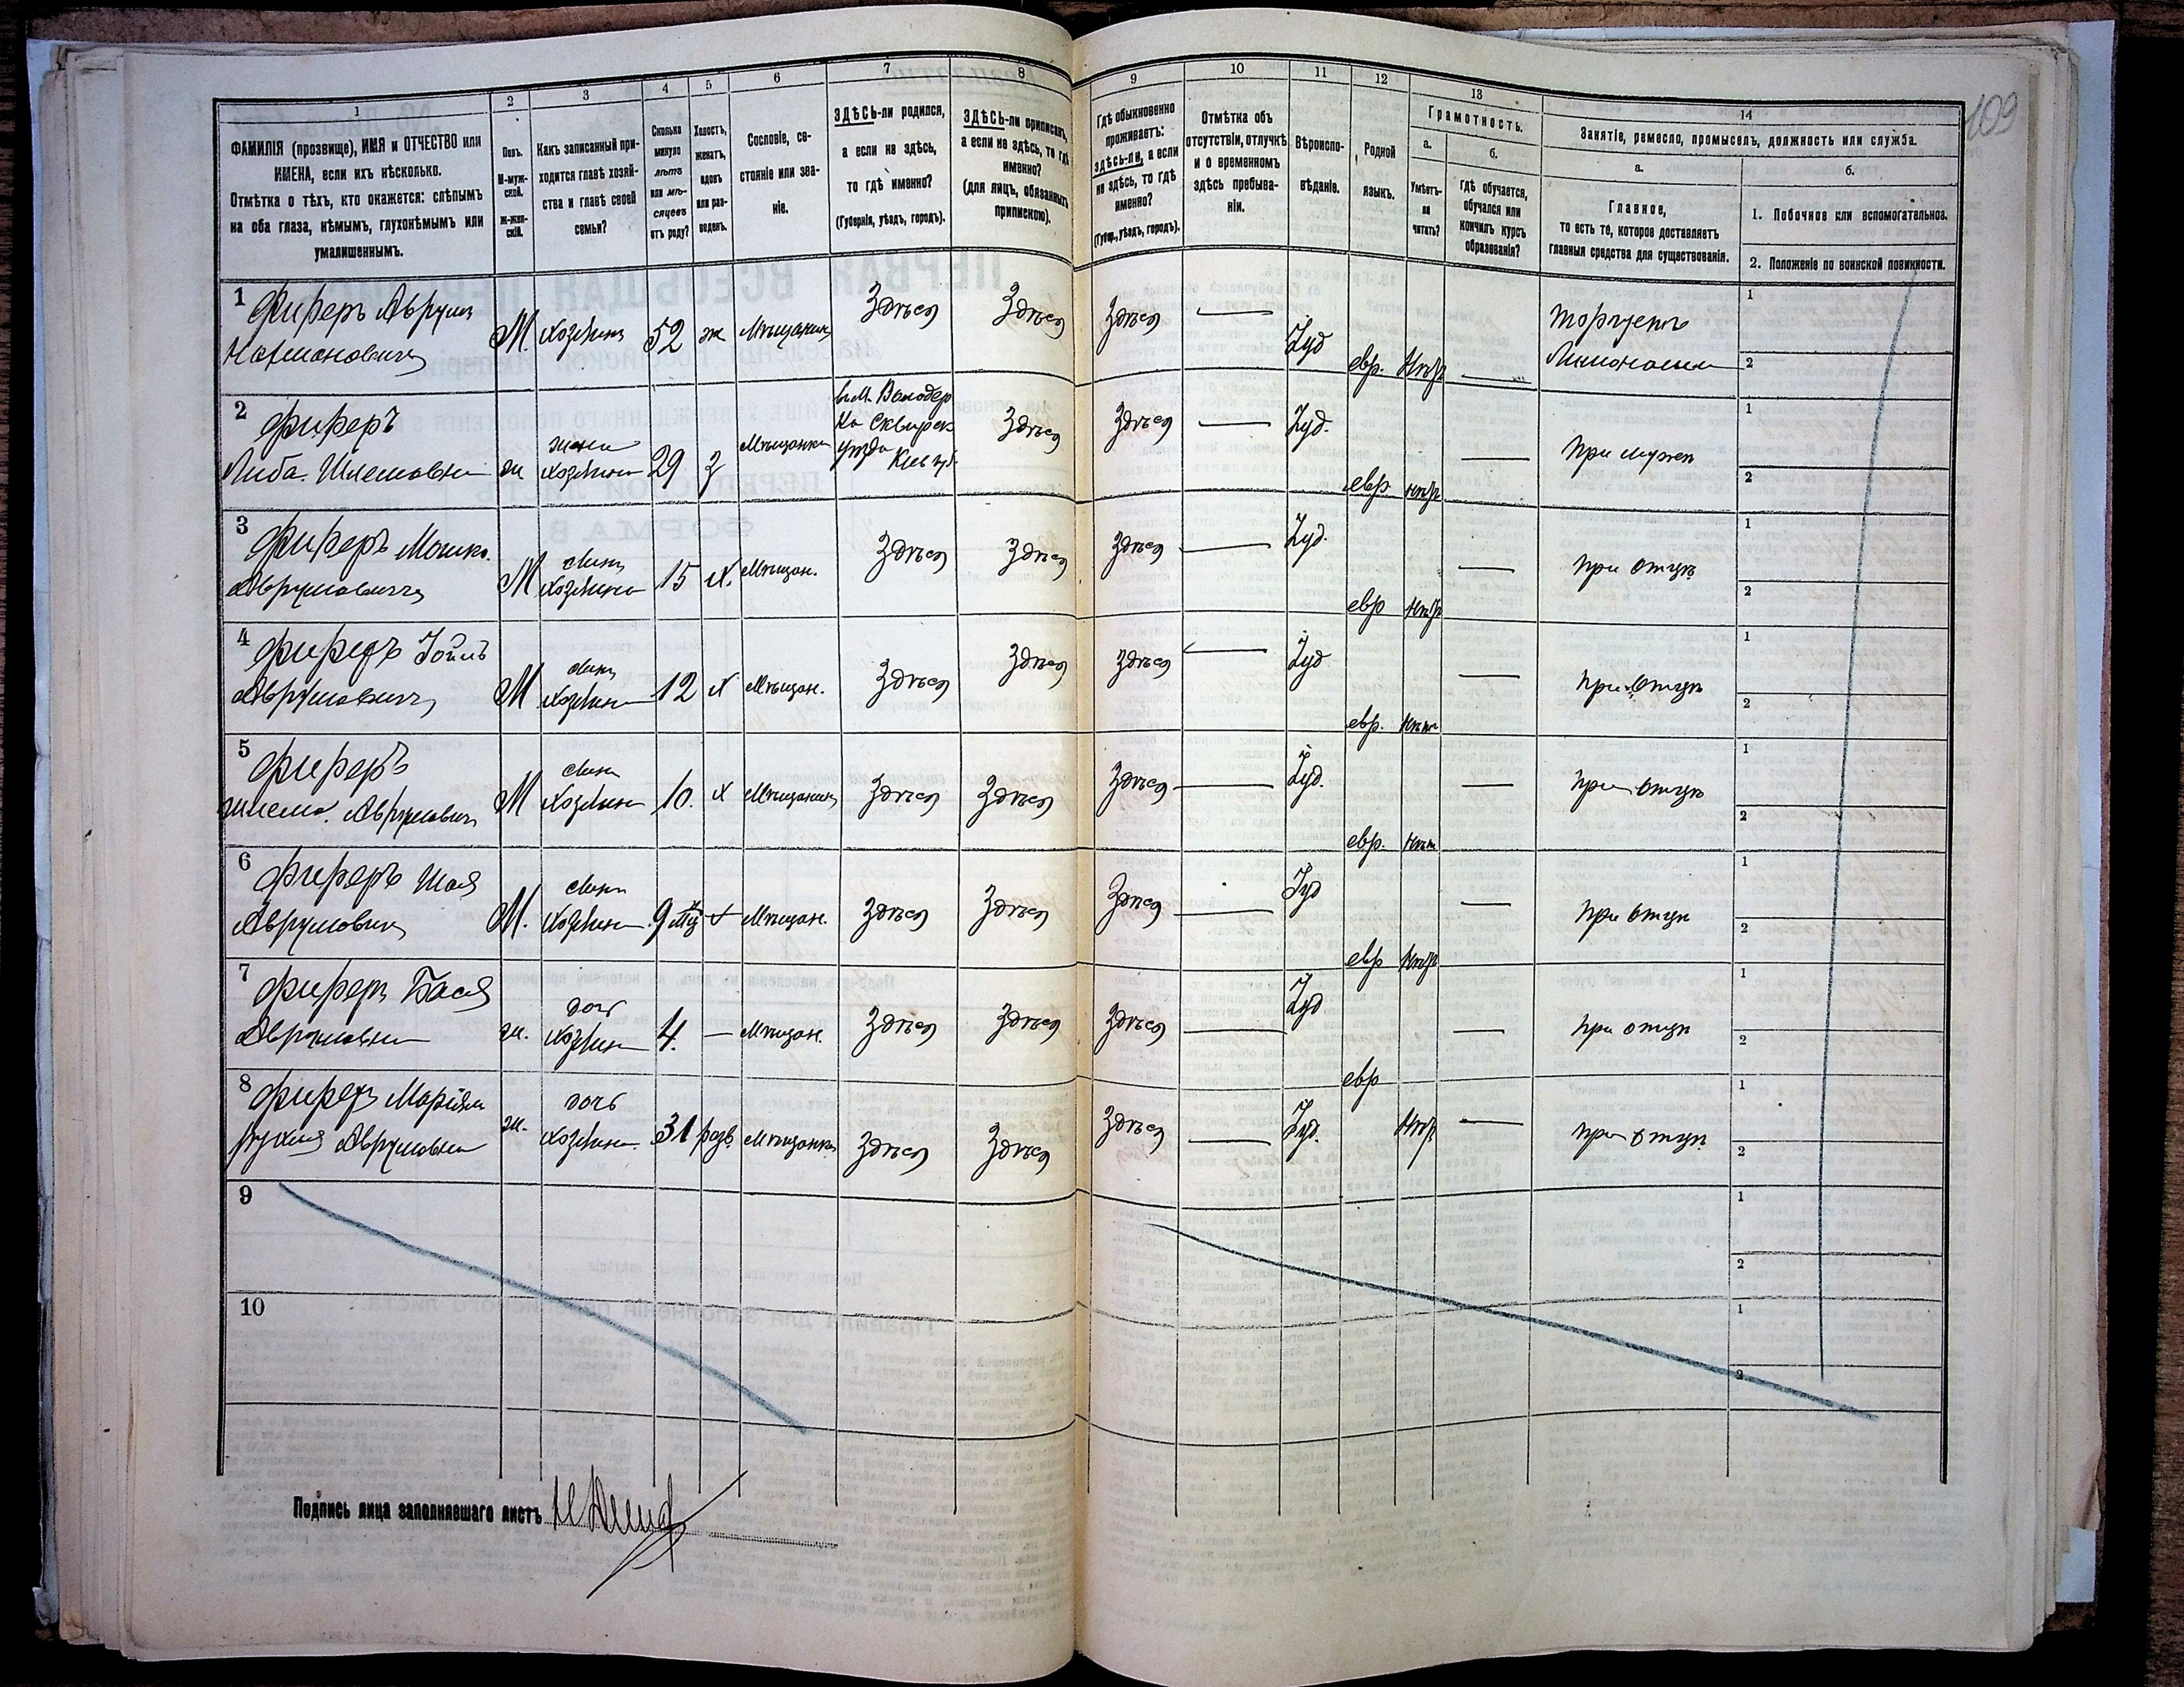 109
1
ФАМИЛІЯ (прозвище), ИМЯ и ОТЧЕСТВО или
ИМЕНА, если ихъ нѣсколько.
Отмѣтка о тѣхъ, кто окажется: слѣпымъ
на оба глаза, нѣмымъ, глухонѣмымъ или
умалишеннымъ.
2
Полъ.
М-муж-
ской.
Ж-жен-
скій.
3
Какъ записанный при-
ходится главѣ хозяй-
ства и главѣ своей
семьи?
4
Сколько
минуло
лѣтъ
или мѣ-
сяцевъ
отъ роду?
5
Холостъ,
женатъ,
вдовъ
или раз-
веденъ.
6
Сословіе, со-
стояніе или зва-
ніе.
7
ЗДѢСЬ-ли родился,
а если не здѣсь,
то гдѣ именно?
(Губернія, уѣздъ, городъ).
8
ЗДѢСЬ-ли приписанъ,
а если не здѣсь, то гдѣ
именно?
(для лицъ, обязанныхъ
припискою).
9
Гдѣ обыкновенно
проживаетъ:
здѣсь-ли, а если
не здѣсь, то гдѣ
именно?
(Губер., уѣздъ, городъ).
10
Отмѣтка объ
отсутствіи, отлучкѣ
и о временномъ
здѣсь пребыва-
ніи.
11
Вѣроиспо-
вѣданіе.
12
Родной
языкъ.
13
Грамотность.
а.
Умѣетъ-
ли
читать?
б.
гдѣ обучается,
обучался или
кончилъ курсъ
образованія?
14
Занятіе, ремесло, промыселъ, должность или служба.
а.
Главное,
то есть то, которое доставляетъ
главныя средства для существованія.
б.
1. Побочное или вспомогательное.
2. Положеніе по воинской повинности.
1 Фиферъ Аврумъ
Нахмановичъ
М. Хозяинъ 52 ж Мѣщанинъ Здѣсь Здѣсь Здѣсь — Iуд евр. Нѣтъ —
Торгуетъ
1
2
2 Фиферъ
Либа Шлемовна
ж жена
хозяина 29 З Мѣщанка
въ м. Володар
ка Сквирск
уѣзда Кіев губ.
Здѣсь Здѣсь — Iуд. евр нѣтъ — При мужѣ
1
2
3 Фиферъ Мошко
Аврумовичъ
М сынъ
хозяина 15 х. Мѣщан. Здѣсь Здѣсь Здѣсь — Iуд. евр нѣтъ — При отцѣ
1
2
4 Фиферъ Iойлъ
Аврумовичъ
М сынъ
хозяина 12 х Мѣщан. Здѣсь Здѣсь Здѣсь — Iуд евр. Нѣтъ — При отцѣ
1
2
5 Фиферъ
Шлема Аврумович
М сынъ
хозяина 10. х Мѣщанинъ Здѣсь Здѣсь Здѣсь — Iуд. евр. Нѣтъ — При отцѣ
1
2
6 Фиферъ Шая
Аврумовичъ
М. сынъ
хозяина 9 х Мѣщан. Здѣсь Здѣсь Здѣсь — Iуд евр Нѣтъ — При отцѣ
1
2
7 Фиферъ Бася
Аврумовна
ж. дочь
хозяина 4. — Мѣщан. Здѣсь Здѣсь Здѣсь — Iуд евр — При отцѣ
1
2
8 Фиферъ Марiям
Рухля Аврумовна
ж. дочь
хозяина 31 разв. Мѣщанка Здѣсь Здѣсь Здѣсь — Iуд. Нѣтъ — При отцѣ
1
2
9
1
2
10
1
2
Подпись лица заполнявшаго листъ